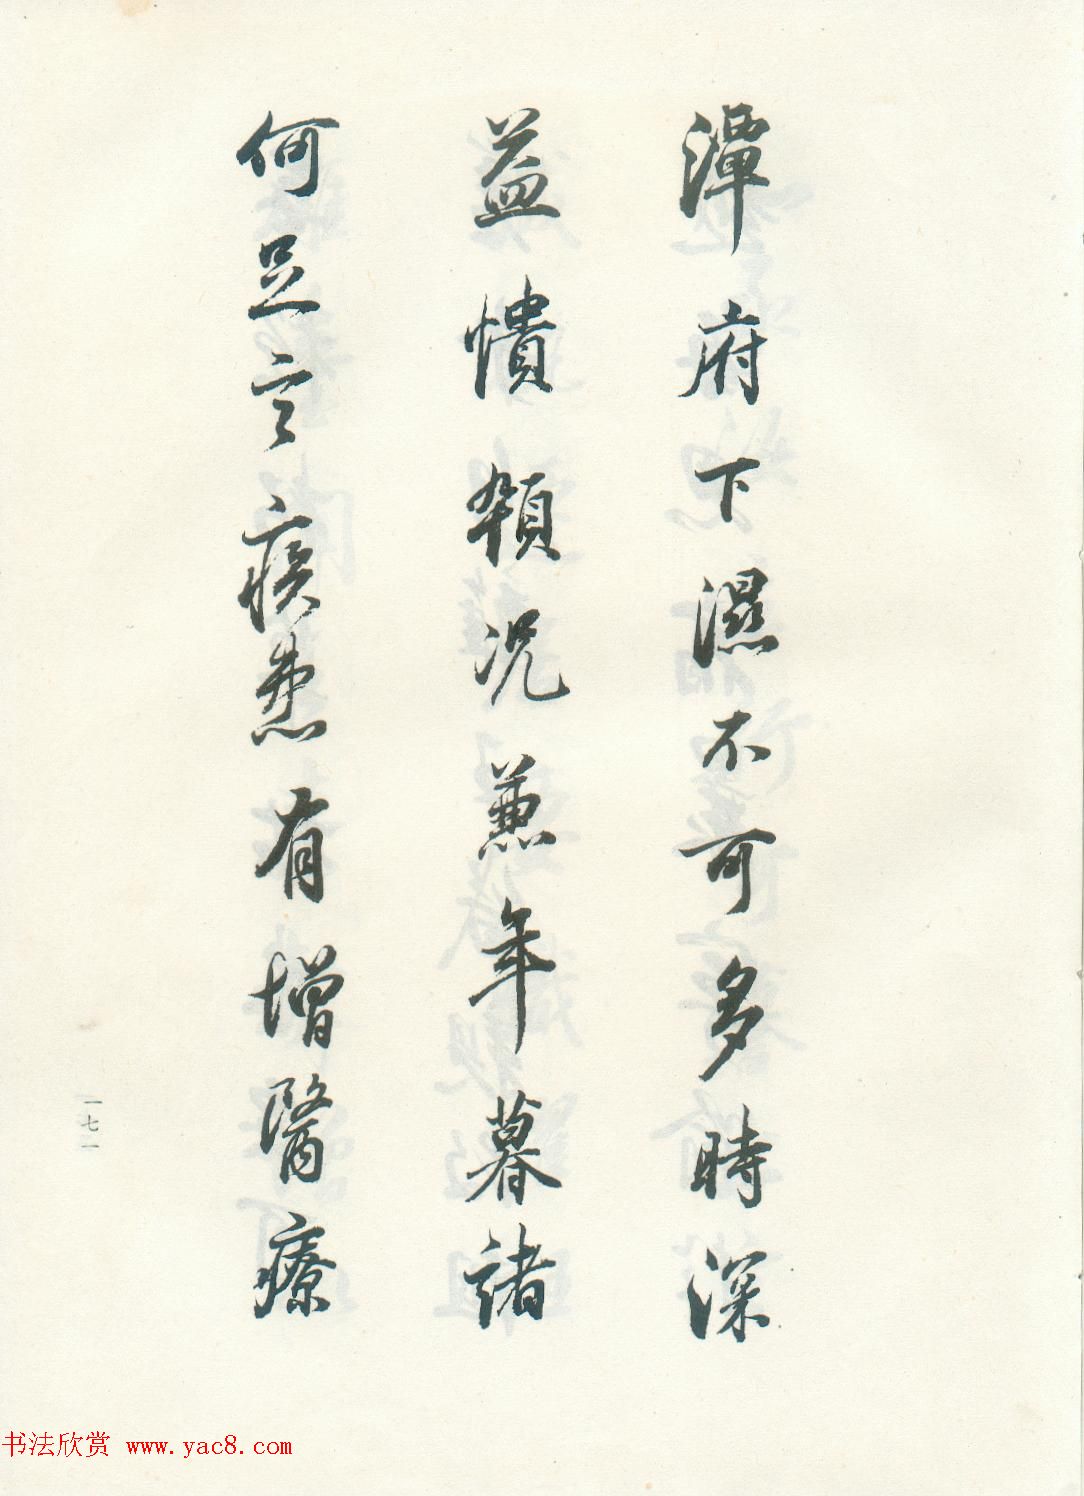 潭府下濕不可多時深
益憒𩓐況兼年暮諸
何足言疾患有增醫療
一七一
书法欣赏 www.yac8.com